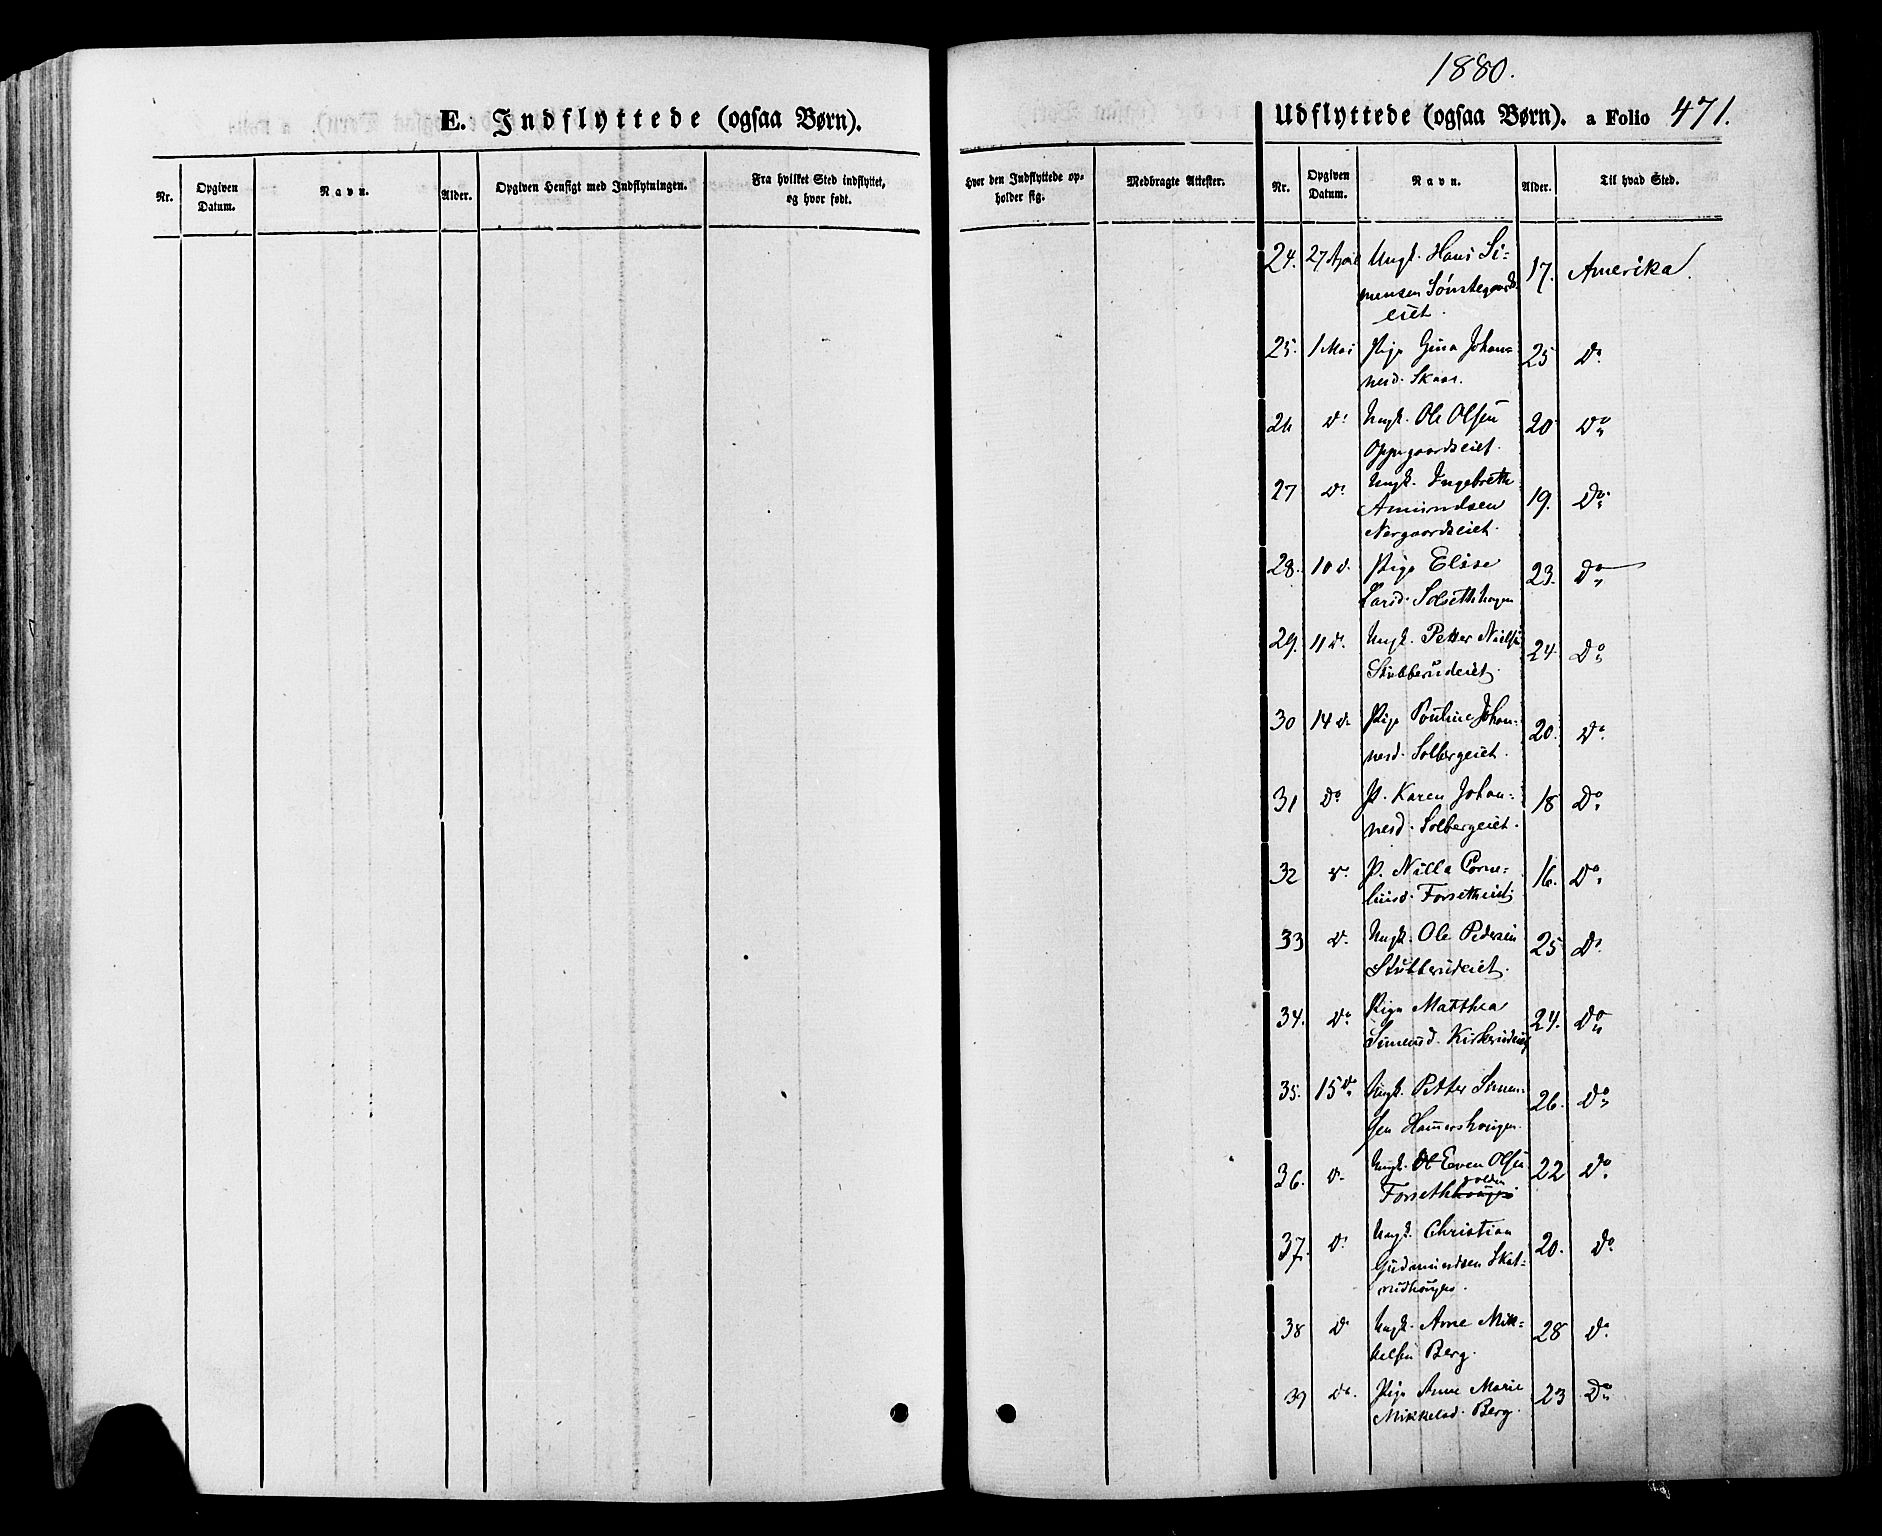 1880.
E. Indflyttede (ogsaa Børn).
Udflyttede (ogsaa Børn). a Folio 471.
Nr. Opgiven Datum. Navn. Alder. Opgiven Hensigt med Indflytningen. Fra hvilket Sted indflyttet, og hvor født. Hvor den Indflyttede opholder sig. Medbragte Attester.
Nr. Opgiven Datum. Navn. Alder. Til hvad Sted.
24. 27 April Ungk. Hans Si= 17. Amerika.
mensen Sønstegaards
eiet.
25. 1 Mai Pige Gina Johan= 25 Do
nesd. Skaar.
26 Do Ungk. Ole Olsen 20 Do
Oppegaardseiet.
27 Do Ungk. Ingebreth 19. Do
Amundsen
Nergaardseiet.
28. 10 d. Pige Elise 23. Do
Larsd. Solsethhagen
29. 11 d. Ungk. Petter Nielsen 24 Do
Stubberudeiet.
30 14 d. Pige Pouline Johan= 20. Do
nesd. Solbergeiet.
31 Do P. Karen Johan= 18 Do
nesd. Solbergeiet.
32 d. P. Nilla Corne= 16. Do
liusd. Forsetheiet
33 d. Ungk. Ole Pedersen 25 Do
Stubberudeiet.
34. Do Pige Matthea 24. Do
Simensd. Kirkerudeiet
35. 15 Do Ungk. Petter Simen= 26. Do
sen Hammershaugen.
36. d. Ungk. Even Olsen 22 Do
Forseth
37. d. Ungk. Christian 20. Do
Gudmundsen Skat=
rudhaugen.
38 d. Ungk. Arne Mik= 28 Do
kelsen Berg.
39 Do. Pige Anne Marie 23 Do
Mikkelsd. Berg.